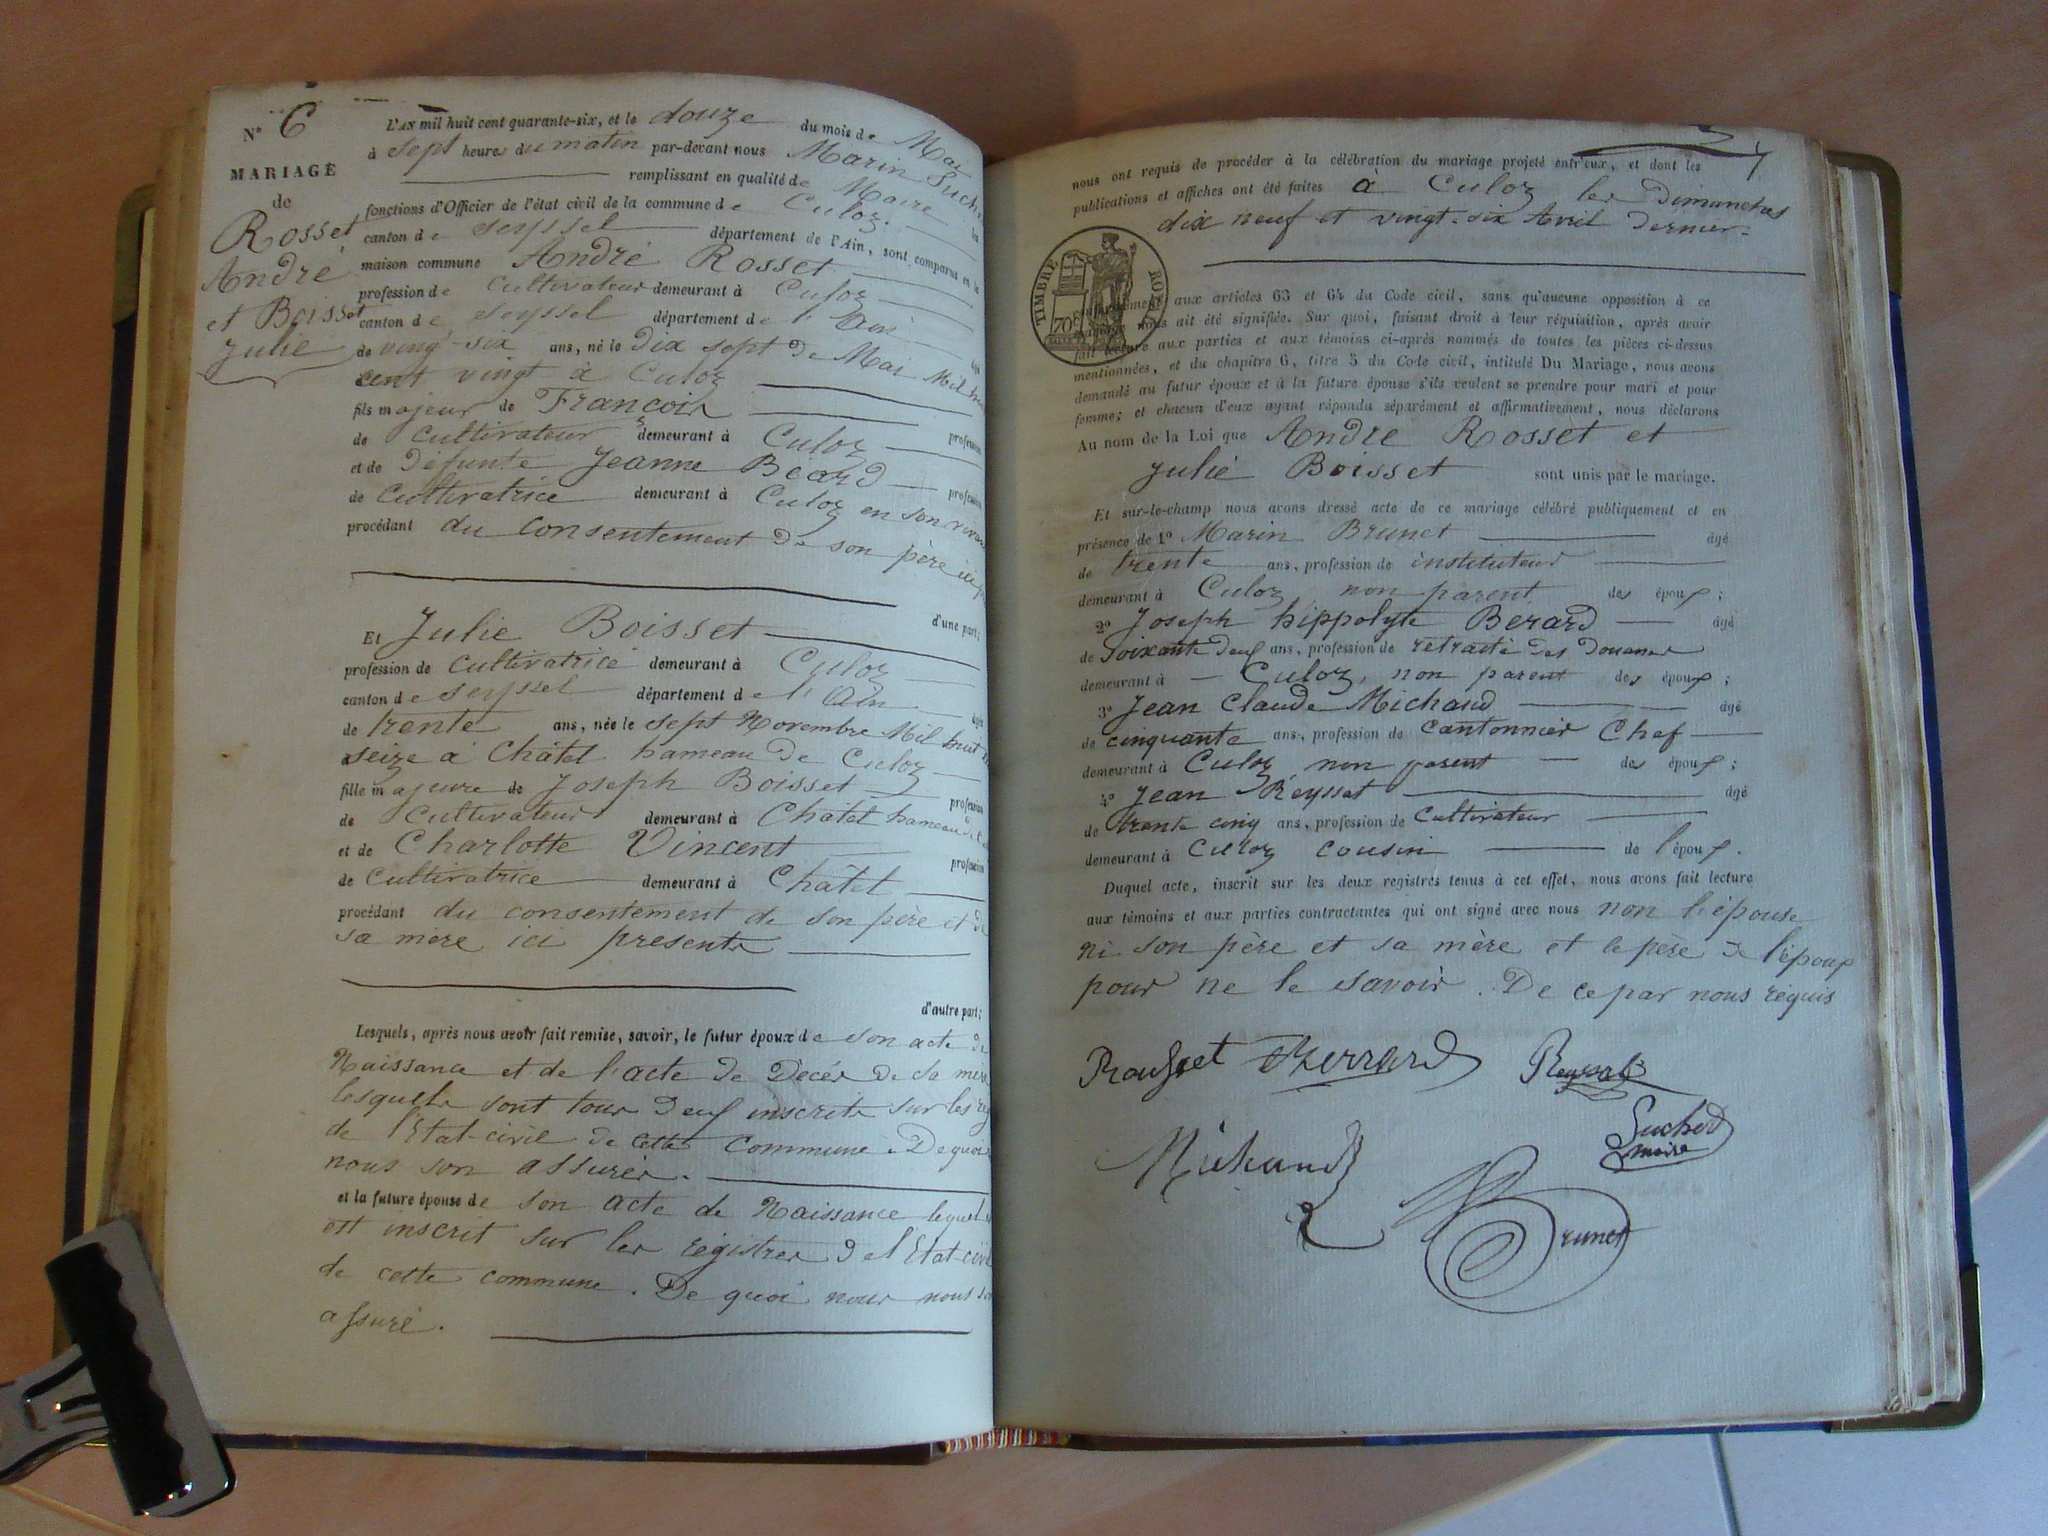 N° 6
MARIAGE
de
Rosset
André
et Boisset
Julie
L'AN mil huit cent quarante-six, et le douze du mois de Mai
à sept heures du matin par-devant nous Marin Suchet
remplissant en qualité de Maire les
fonctions d'Officier de l'état civil de la commune de Culoz
canton de Seyssel département de l'Ain, sont comparus en la
maison commune André Rosset
profession de cultivateur demeurant à Culoz
canton de Seyssel département de l'Ain âgé
de vingt-six ans, né le dix sept de Mai Mil huit
cent vingt à Culoz
fils majeur de François profession
de cultivateur demeurant à Culoz
et de défunte Jeanne Beard profession
de cultivatrice demeurant à Culoz en son vivant
procédant du consentement de son père ici
d'une part;
Et Julie Boisset
profession de cultivatrice demeurant à Culoz
canton de Seyssel département de l'Ain âgée
de trente ans, née le sept Novembre Mil huit
seize à Châtel hameau de Culoz
fille majeure de Joseph Boisset profession
de Cultivateur demeurant à Châtel hameau de
et de Charlotte Vincent profession
de Cultivatrice demeurant à Châtel
procédant du consentement de son père et de
sa mère ici presents
d'autre part;
Lesquels, après nous avoir fait remise, savoir, le futur époux de son acte de
Naissance et de l'acte de Décés de sa mère
lesquels sont tous deux inscrits sur les reg
de l'Etat-civil de cette Commune. De quoi
nous son assurés.
et la future épouse de son acte de Naissance lequel
est inscrit sur les régistres de l'Etat-civil
de cette commune. De quoi nous nous
assuré.
7
nous ont requis de procéder à la célébration du mariage projeté entr'eux, et dont les
publications et affiches ont été faites à Culoz les Dimanches
dix neuf et vingt-six Avril dernier.
TIMBRE ROYAL
70c
conformément aux articles 63 et 64 du Code civil, sans qu'aucune opposition à ce
mariage nous ait été signifiée. Sur quoi, faisant droit à leur réquisition, après avoir
fait lecture aux parties et aux témoins ci-après nommés de toutes les pièces ci-dessus
mentionnées, et du chapitre 6, titre 5 du Code civil, intitulé Du Mariage, nous avons
demandé au futur époux et à la future épouse s'ils veulent se prendre pour mari et pour
femme; et chacun d'eux ayant répondu séparément et affirmativement, nous déclarons
Au nom de la Loi que André Rosset et
Julie Boisset sont unis par le mariage.
Et sur-le-champ nous avons dressé acte de ce mariage célébré publiquement et en
présence de 1° Marin Brunet âgé
de trente ans, profession de instituteur
demeurant à Culoz non parent des époux;
2° Joseph hippolyte Bérard âgé
de soixante deux ans, profession de retraité des Douanes
demeurant à Culoz, non parent des époux;
3° Jean Claude Michaud âgé
de cinquante ans, profession de Cantonnier Chef
demeurant à Culoz non parent des époux;
4° Jean Reysset âgé
de trente cinq ans, profession de Cultivateur
demeurant à Culoz cousin de l'époux.
Duquel acte, inscrit sur les deux registres tenus à cet effet, nous avons fait lecture
aux témoins et aux parties contractantes qui ont signé avec nous non l'épouse
ni son père et sa mère et le père de l'époux
pour ne le savoir. De ce par nous réquis
Rousset Berrard Reyssat
Suchet
Michaud maire
Brunet